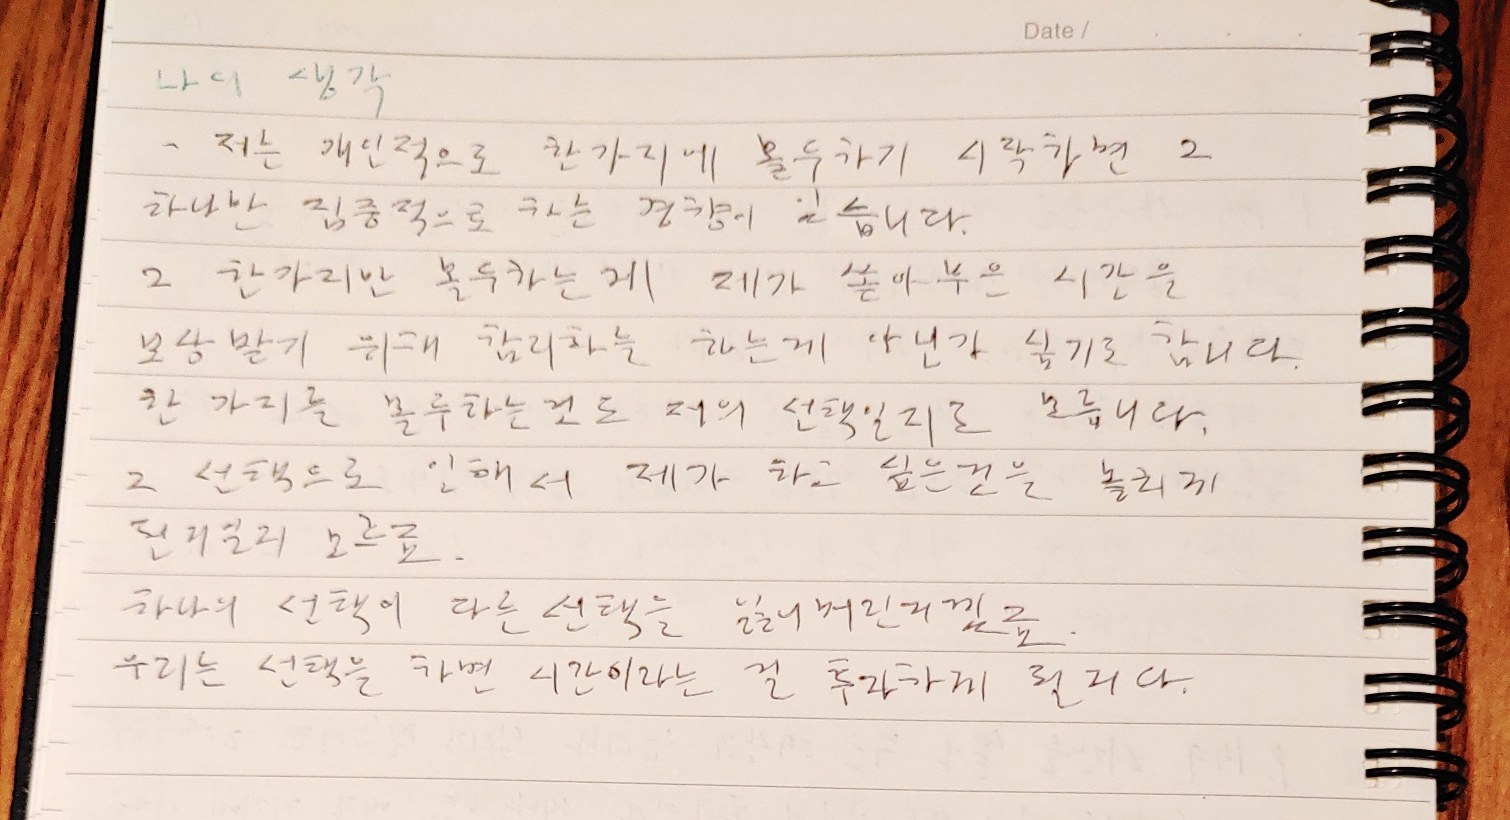 Date /
나의 생각
- 저는 개인적으로 한가지에 몰두하기 시작하면 그
하나만 집중적으로 하는 경향이 있습니다.
그 한가지만 몰두하는게 제가 쏟아부은 시간을
보상받기 위해 합리화를 하는게 아닌가 싶기도 합니다.
한 가지를 몰두하는것도 저의 선택일지도 모릅니다.
그 선택으로 인해서 제가 하고 싶은건을 놓치게
된지일지 모르죠.
하나의 선택이 다른선택을 잃어버린거겠죠.
우리는 선택을 하면 시간이라는 걸 투자하게 됩니다.